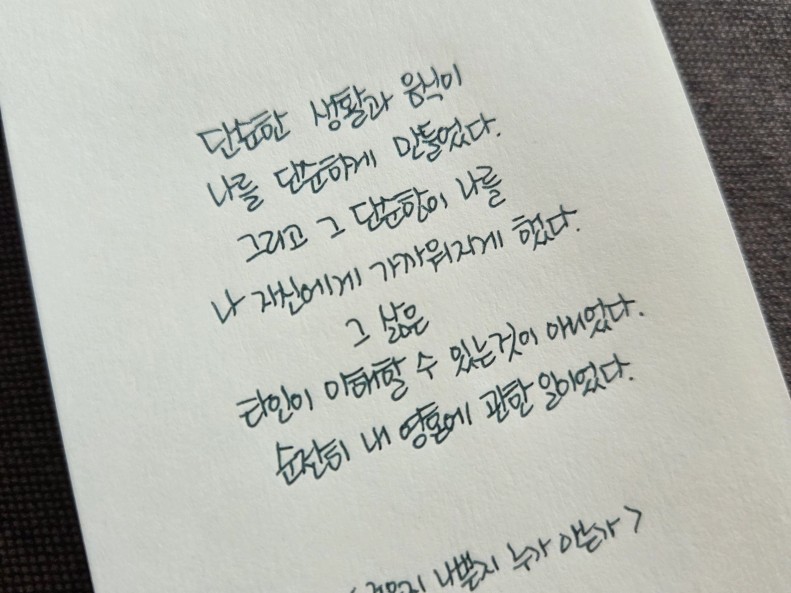 단순한 생활과 음식이
나를 단순하게 만들었다.
그리고 그 단순함이 나를
나 자신에게 가까워지게 했다.
그 삶은
타인이 이해할 수 있는것이 아니었다.
순전히 내 영혼에 관한 일이었다.
나쁜지 누가 아는가>